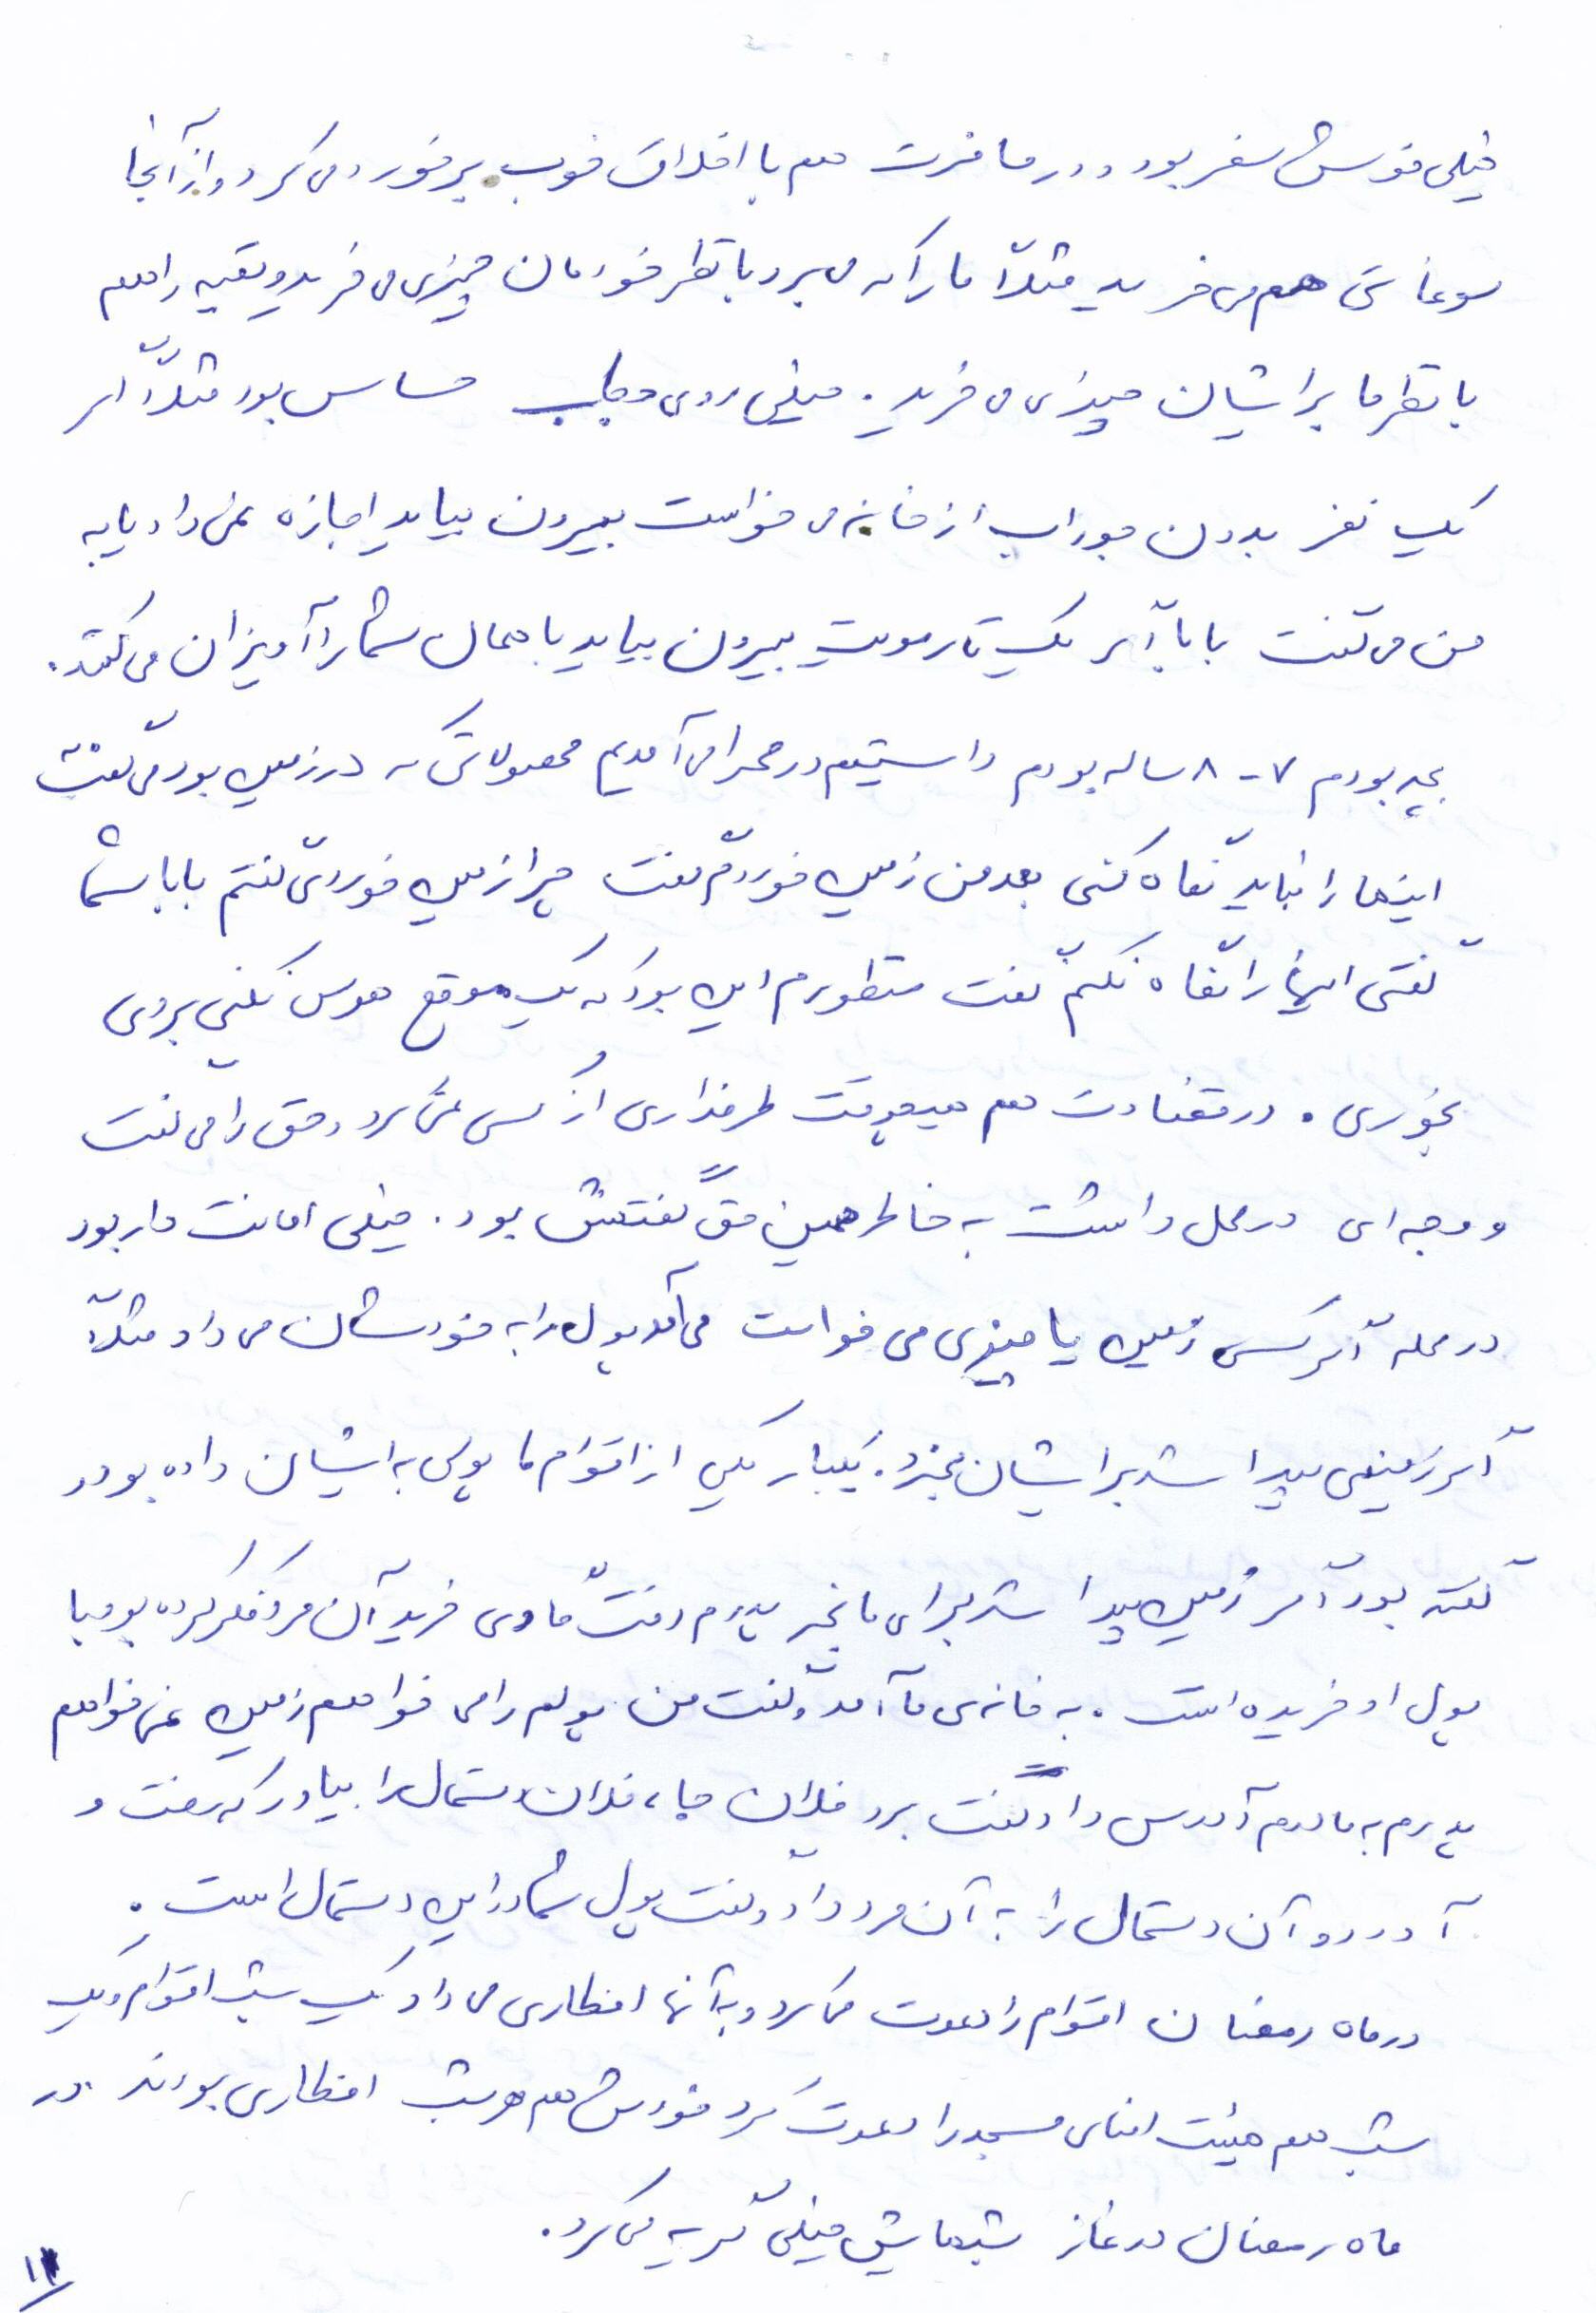 خیلی خوش سفر بود و در مسافرت هم با اخلاق خوب برخورد می کرد و از آنجا
سوغاتی هم می خرید مثلاً ما را که می برد با نظر خودمان چیزی می خرید و بقیه را هم
با نظر ما برایشان چیزی می خرید. خیلی روی حجاب حساس بود مثلاً اگر
یک نفر بدون جوراب از خانه می خواست بیرون بیاید اجازه نمی داد یا به
من می گفت بابا اگر یک تار مویت بیرون بیاید با همان شما را آویزان می کنند.
بچه بودم ۷-۸ ساله بودم داشتیم در صحرا می آمدیم محصولاتی که در زمین بود می گفت
اینها را نباید نگاه کنی بعد من زمین خوردم گفت چرا زمین خوردی گفتم بابا شما
گفتی اینها را نگاه نکنم گفت منظورم این بود که یک موقع هوس نکنی بروی
بخوری. در قضاوت هم هیچوقت طرفداری از کسی نمی کرد و حق را می گفت
و وجه ای در محل داشت به خاطر همین حق گفتنش بود. خیلی امانت دار بود
در محله اگر کسی زمین یا چیزی می خواست می آمد پول را به خودشان می داد مثلاً
اگر زمینی پیدا شد برایشان بخرد. یکبار یکی از اقوام ما پولی به ایشان داده بود و
گفته بود اگر زمین پیدا شد برای ما بخر پدرم رفت گاوی خرید آن مرد فکر کرده بود با
پول او خریده است. به خانه ی ما آمد و گفت من پولم را می خواهم زمین نمی خواهم
پدرم به مادرم آدرس داد و گفت برو فلان جا، فلان دستمال را بیاور که رفت و
آورد و آن دستمال را به آن مرد داد و گفت پول شما در این دستمال است.
در ماه رمضان اقوام را دعوت می کرد و به آنها افطاری می داد یک شب اقوام و یک
شب هم هیئت امنای مسجد را دعوت می کرد خودش هم هر شب افطاری بودند در
ماه رمضان در نماز شبهایش خیلی گریه می کرد.